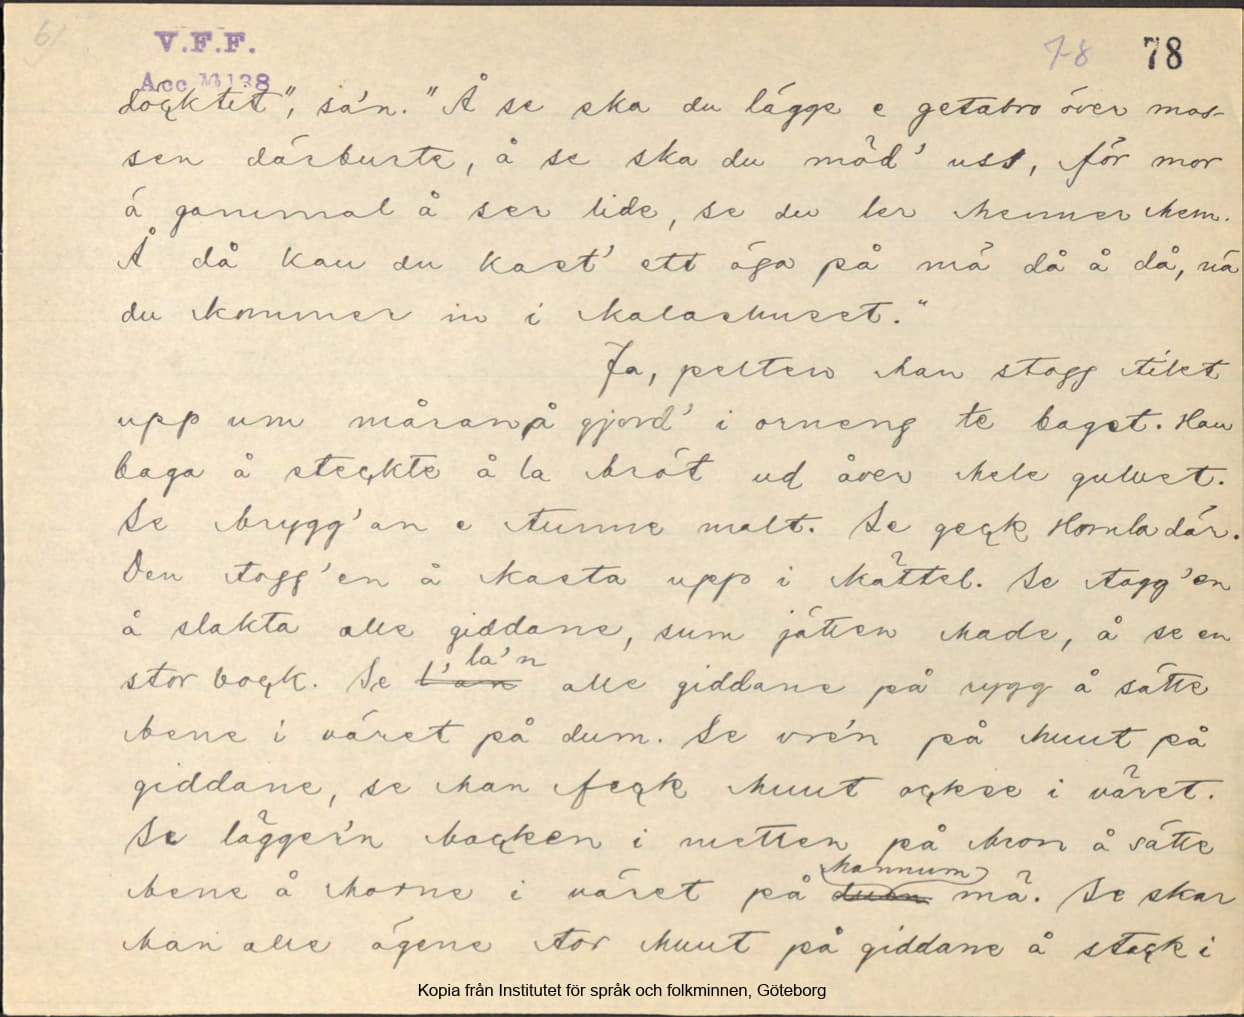 6)
V.F.F.
7-8 78
Acc № 138
döcktet", sa'n. "Å se ska du lägge e getabro över mos-
sen därburte, å se ska du möd' uss, för mor
ä gammal å ser lide, se du ler henner hem.
Å då kan du kast' ett öga på mä då å då, nä
du kommer in i kalashuset."
Ja, pelten han stogg tilet
upp um måran å gjord' i orneng te baget. Han
baga å steckte å la bröt ud över hele gulvet.
Se brygg'an e tunne malt. Se geck Homla där.
Den togg'en å kasta upp i kättel. Se togg'en
å slakta alle giddane, sum jätten hade, å se en
stor bock. Se l'an la'n alle giddane på rygg å sätte
bene i väret på dum. Se vre'n på huut på
giddane, se han feck huut ockse i väret.
Se lägger'n bocken i metten på bron å sätte
bene å horne i väret på hannum mä. Se skar
han alle ögene tor huut på giddane å stack i
Kopia från Institutet för språk och folkminnen, Göteborg